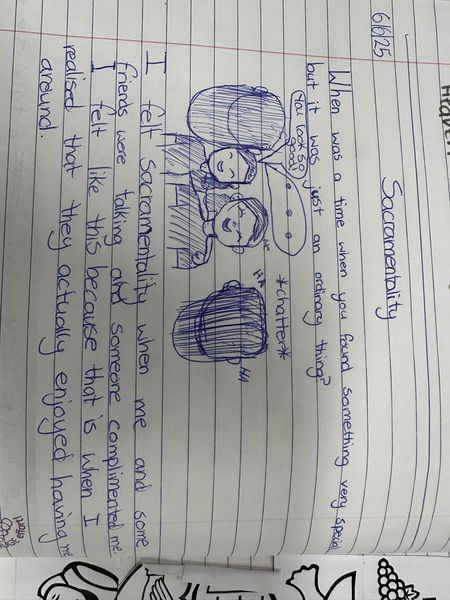 Heaven
6/6/25
Sacramentality
When was a time when you found something very special
but it was just an ordinary thing?
You look so good!
*chatter*
me
HA
HA
I felt Sacramentality when me and some
friends were talking and someone complimented me.
I felt like this because that is when I
realised that they actually enjoyed having me
around.